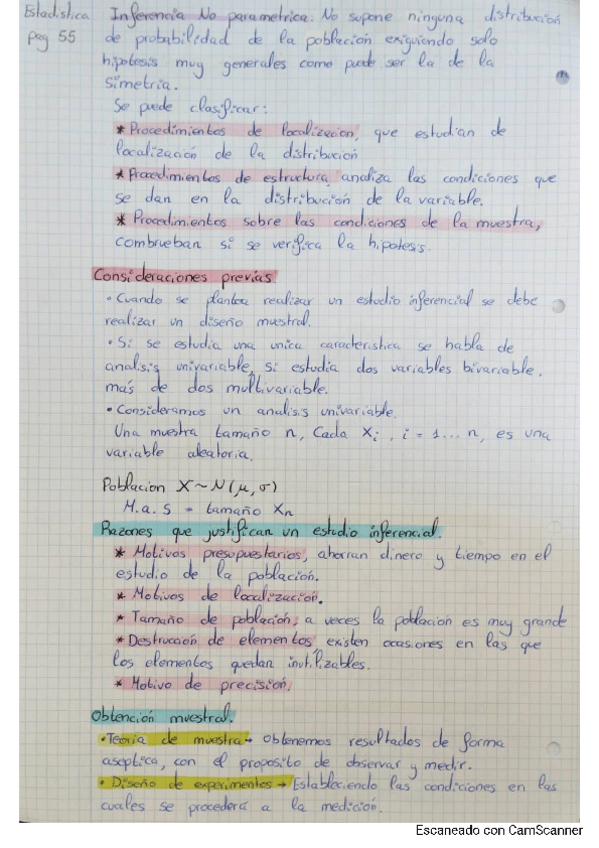 Estadistica
pag 55
Inferencia No parametrica: No supone ninguna distribución
de probabilidad de la poblacion exiguiendo solo
hipotesis muy generales como puede ser la de la
simetria.
Se puede clasificar:
* Procedimientos de localizacion, que estudian de
localización de la distribución
* Procedimientos de estructura, analiza las condiciones que
se dan en la distribución de la variable.
* Procedimientos sobre las condiciones de la muestra,
combrueban si se verifica la hipotesis.
Consideraciones previas
• Cuando se plantea realizar un estudio inferencial se debe
realizar un diseño muestral.
• Si se estudia una unica caracteristica se habla de
analisis univariable, si estudia dos variables bivariable.
mas de dos multivariable.
• Consideramos un analisis univariable.
Una muestra tamaño n, Cada Xi, i = 1... n, es una
variable aleatoria.
Poblacion X ~ N(μ, σ)
M.a.s = tamaño Xn
Razones que justifican un estudio inferencial.
* Motivos presupuestarios, ahorran dinero y tiempo en el
estudio de la población.
* Motivos de localización.
* Tamaño de población, a veces la poblacion es muy grande
* Destrucción de elementos, existen ocasiones en las que
los elementos quedan inutilizables.
* Motivo de precisión.
Obtención muestral.
• Teoria de muestra → Obtenemos resultados de forma
aseptica, con el proposito de observar y medir.
• Diseño de experimentos → Estableciendo las condiciones en las
cuales se procedera a la medición.
Escaneado con CamScanner